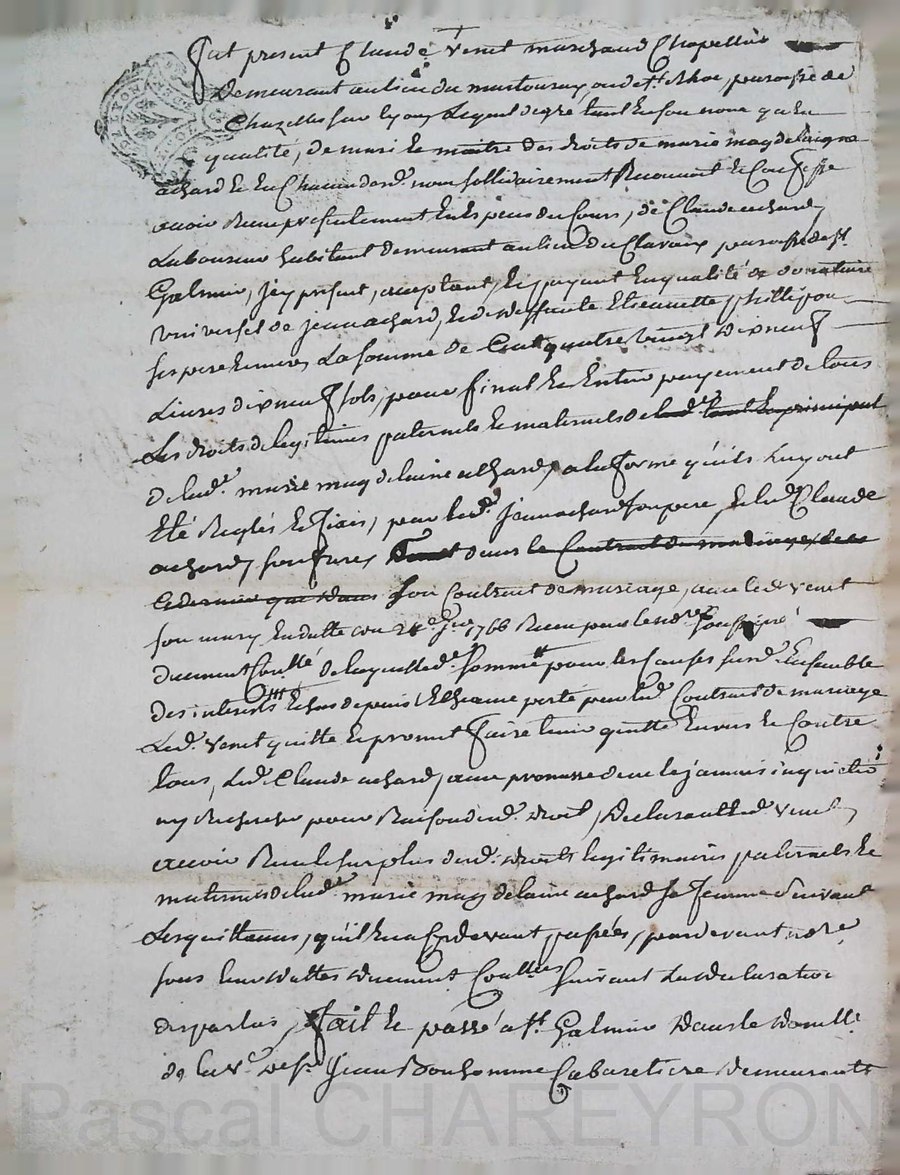 fut present Claude Venet marchand Chapellier
Demeurant au lieu du              ou de St.         paroisse de
Chazelles sur Lyon, Lequel de gré tant en son nom qu'en
qualité, de mari et maitre des droits de marie magdelaigne
achard et en Chacun desd. nom sollidairement Reconnait et Confesse
avoir Reçu presentement en Especes du Cours, de Claude achard,
Laboureur habitant demeurant au lieu du Clavaux paroisse de St.
Galmier, icy present, acceptant, et payant En qualité de donataire
universel de jean achard, et de deffunte Etiennette phillipon
ses pere et mere, La somme de Cent quatre vingt Dix neuf
Livres dix neuf sols, pour final et Entier payement de tous
Les droits de legitimes paternels et maternels de lad. tant En principal
de lad. marie magdelaine achard, a la forme qu'ils Luy ont
Eté Reglés et fixés, par led. jean achard son pere, et led. Claude
achard, son frere,          dans le Contrat de mariage
                  que dans son Contrat de mariage, avec led. Venet
son mary En datte du            1766 Recu par le no.re soussigné
duement Contllé de laquelle d. somme pour les Causes susd. Ensemble
des interets Echus depuis l'Echeance porté par led. Contrat de mariage
Led. Venet quitte et promet faire tenir quitte Envers et Contre
tous, Led. Claude achard, avec promesse de ne le jamais inquieter
ny Rechercher pour Raison desd. droit, Declarant led. Venet,
avoir Recu le surplus desd. droits legitimaires paternels et
maternels de lad. marie magdelaine achard sa femme suivant
Les quittances, qu'il En a Cy devant, passées, pardevant no.re
sous leurs dattes duement Conttllés suivant La declaration
des parties, fait et passé a St. Galmier dans le domille
de la ve. de Sr. Jean Bonhomme Cabaretiere demeurante
Pascal CHAREYRON